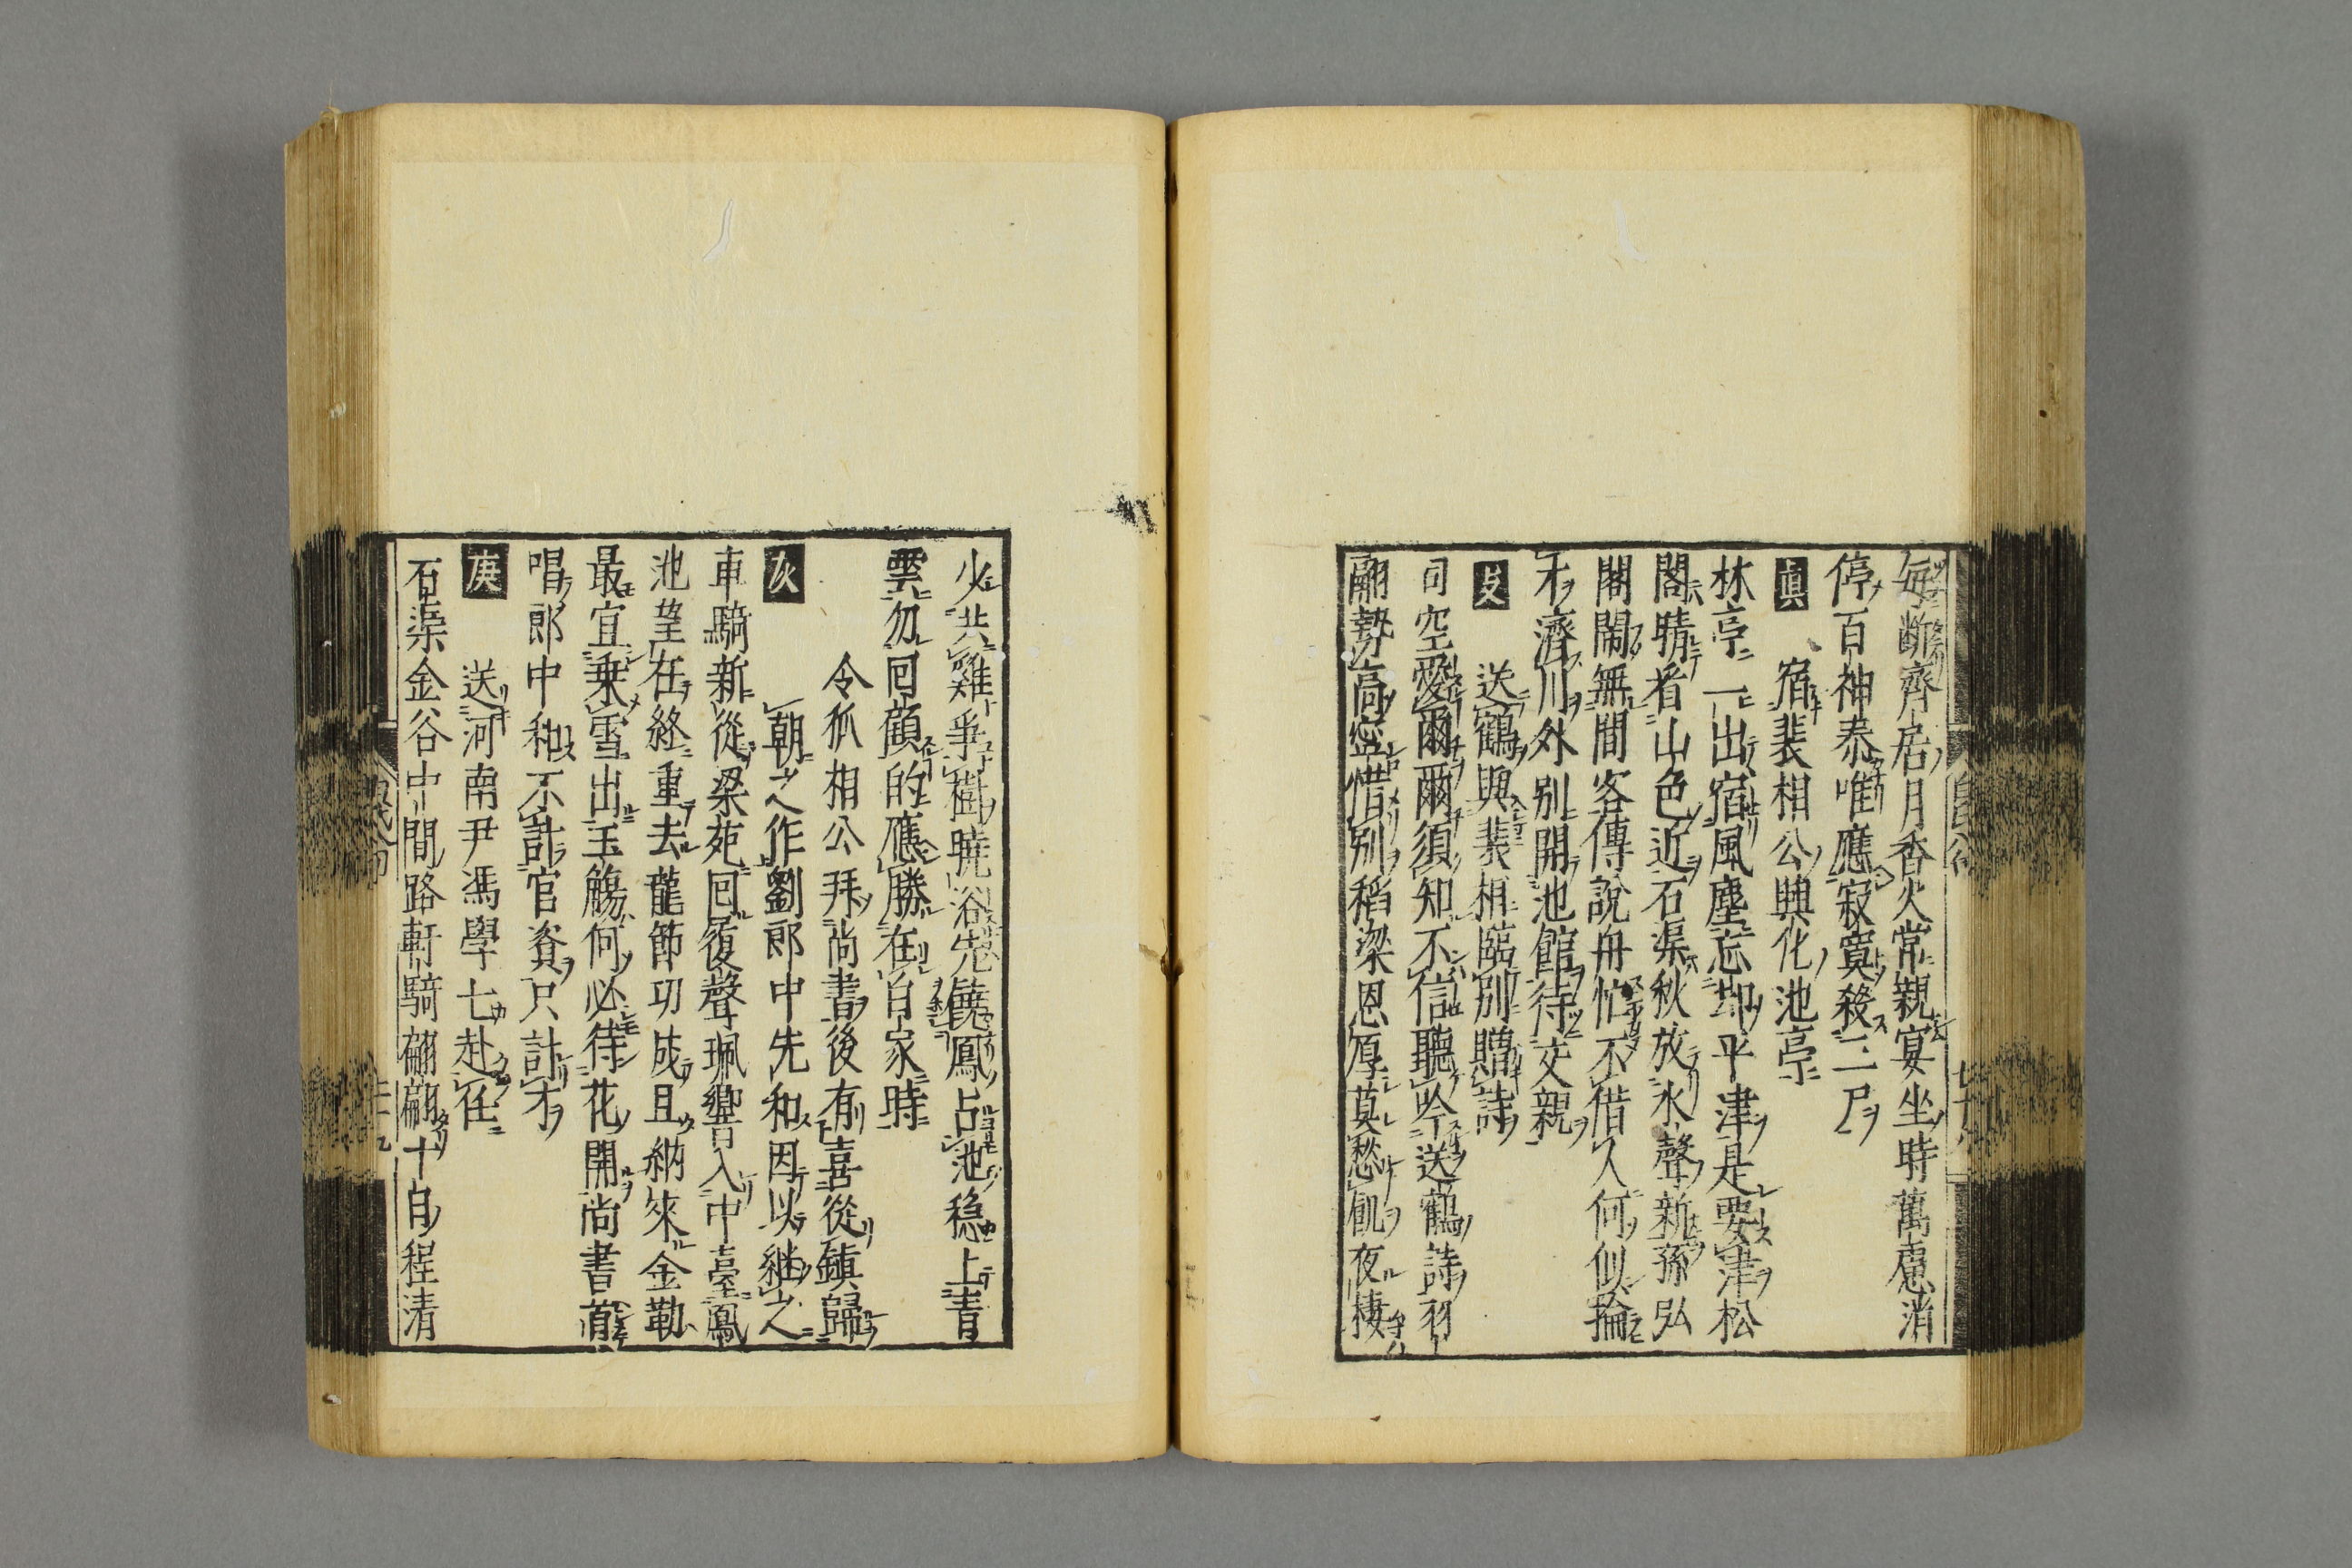 每斷齊居月香火常親宴坐時萬慮消
停百神泰唯應寂寞殺三尸
眞 宿裴相公興化池亭
林亭一出宿風塵忘却平津是要津松
閣晴看山色近石渠秋放水聲新孫弘
閣鬧無閒客傳說舟忙不借人何似掄
才濟川外別開池館待交親
支 送鶴與裴相臨別贈詩
司空愛爾爾須知不信聽吟送鶴詩羽
翮勢高寧惜別稻粱恩厚莫愁飢夜棲
少共雞爭樹曉浴先饒鳳占池穩上青
雲勿囘顧的應勝在白家時
令狐相公拜尚書後有喜從鎮歸
灰 朝之作劉郎中先和因以継之
車騎新從梁苑回履聲珮響入中臺鳳
池望在終重去龍節功成且納來金勒
最宜乗雪出玉觴何必待花開尚書首
唱郎中和不計官資只計才
庚 送河南尹馮學士赴任
石渠金谷中間路軒騎翩翩十日程清